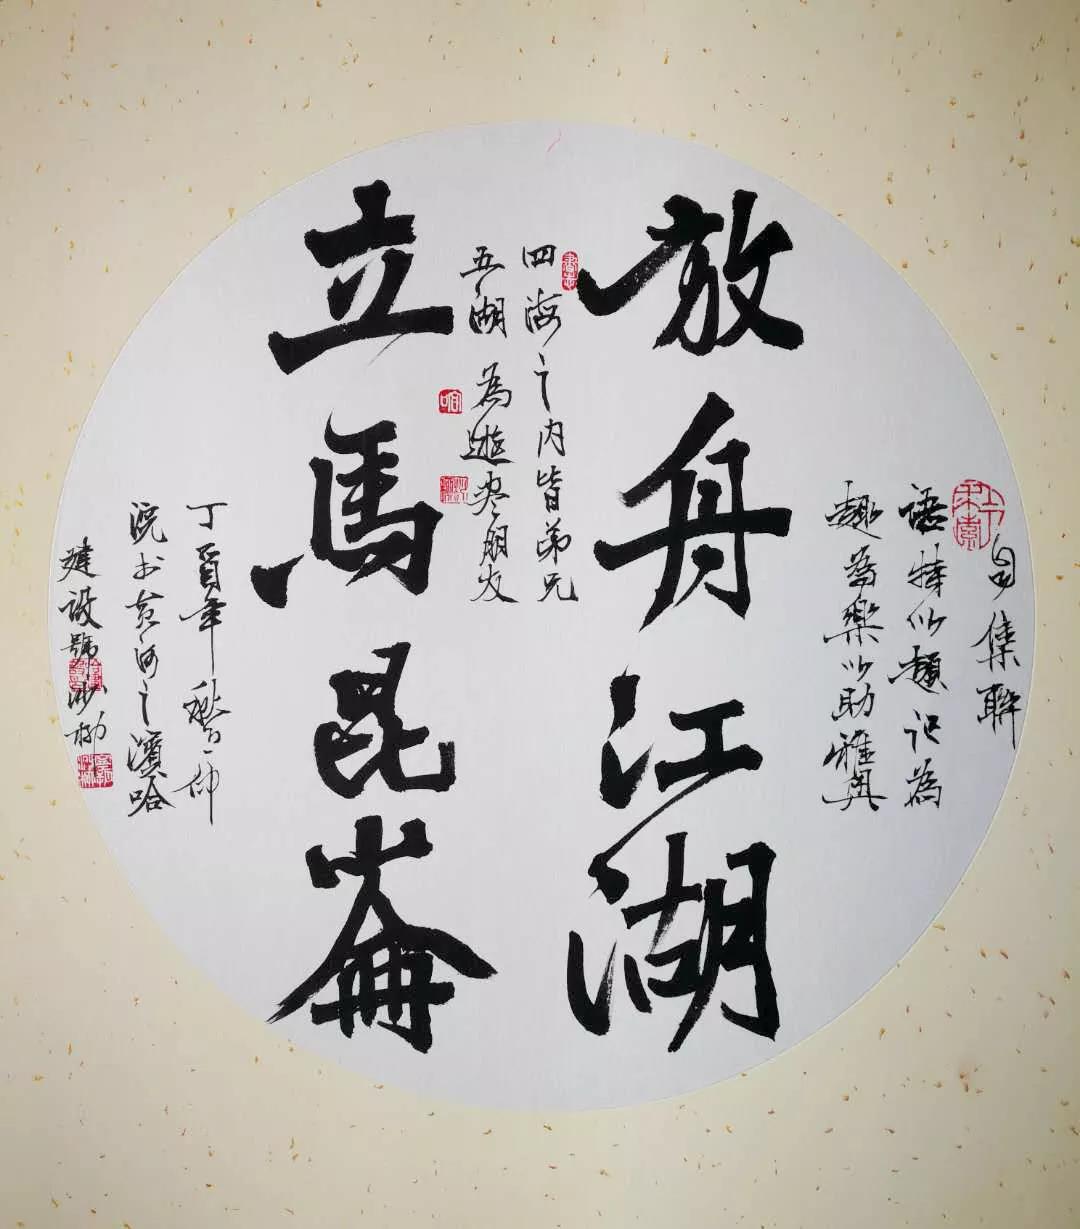 放舟江湖
立馬昆崙
自集聯
語特以題記為
趣為樂以助雅興
四海之内皆弟兄
五湖為遊盡朋友
丁酉年秋月仲
浣於黄河之濱哈
建設號沙柳